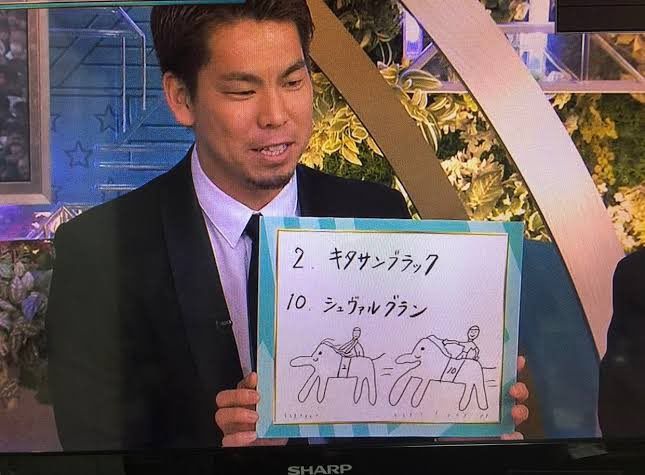 2. キタサンブラック
10. シュヴァルグラン
2 10
SHARP